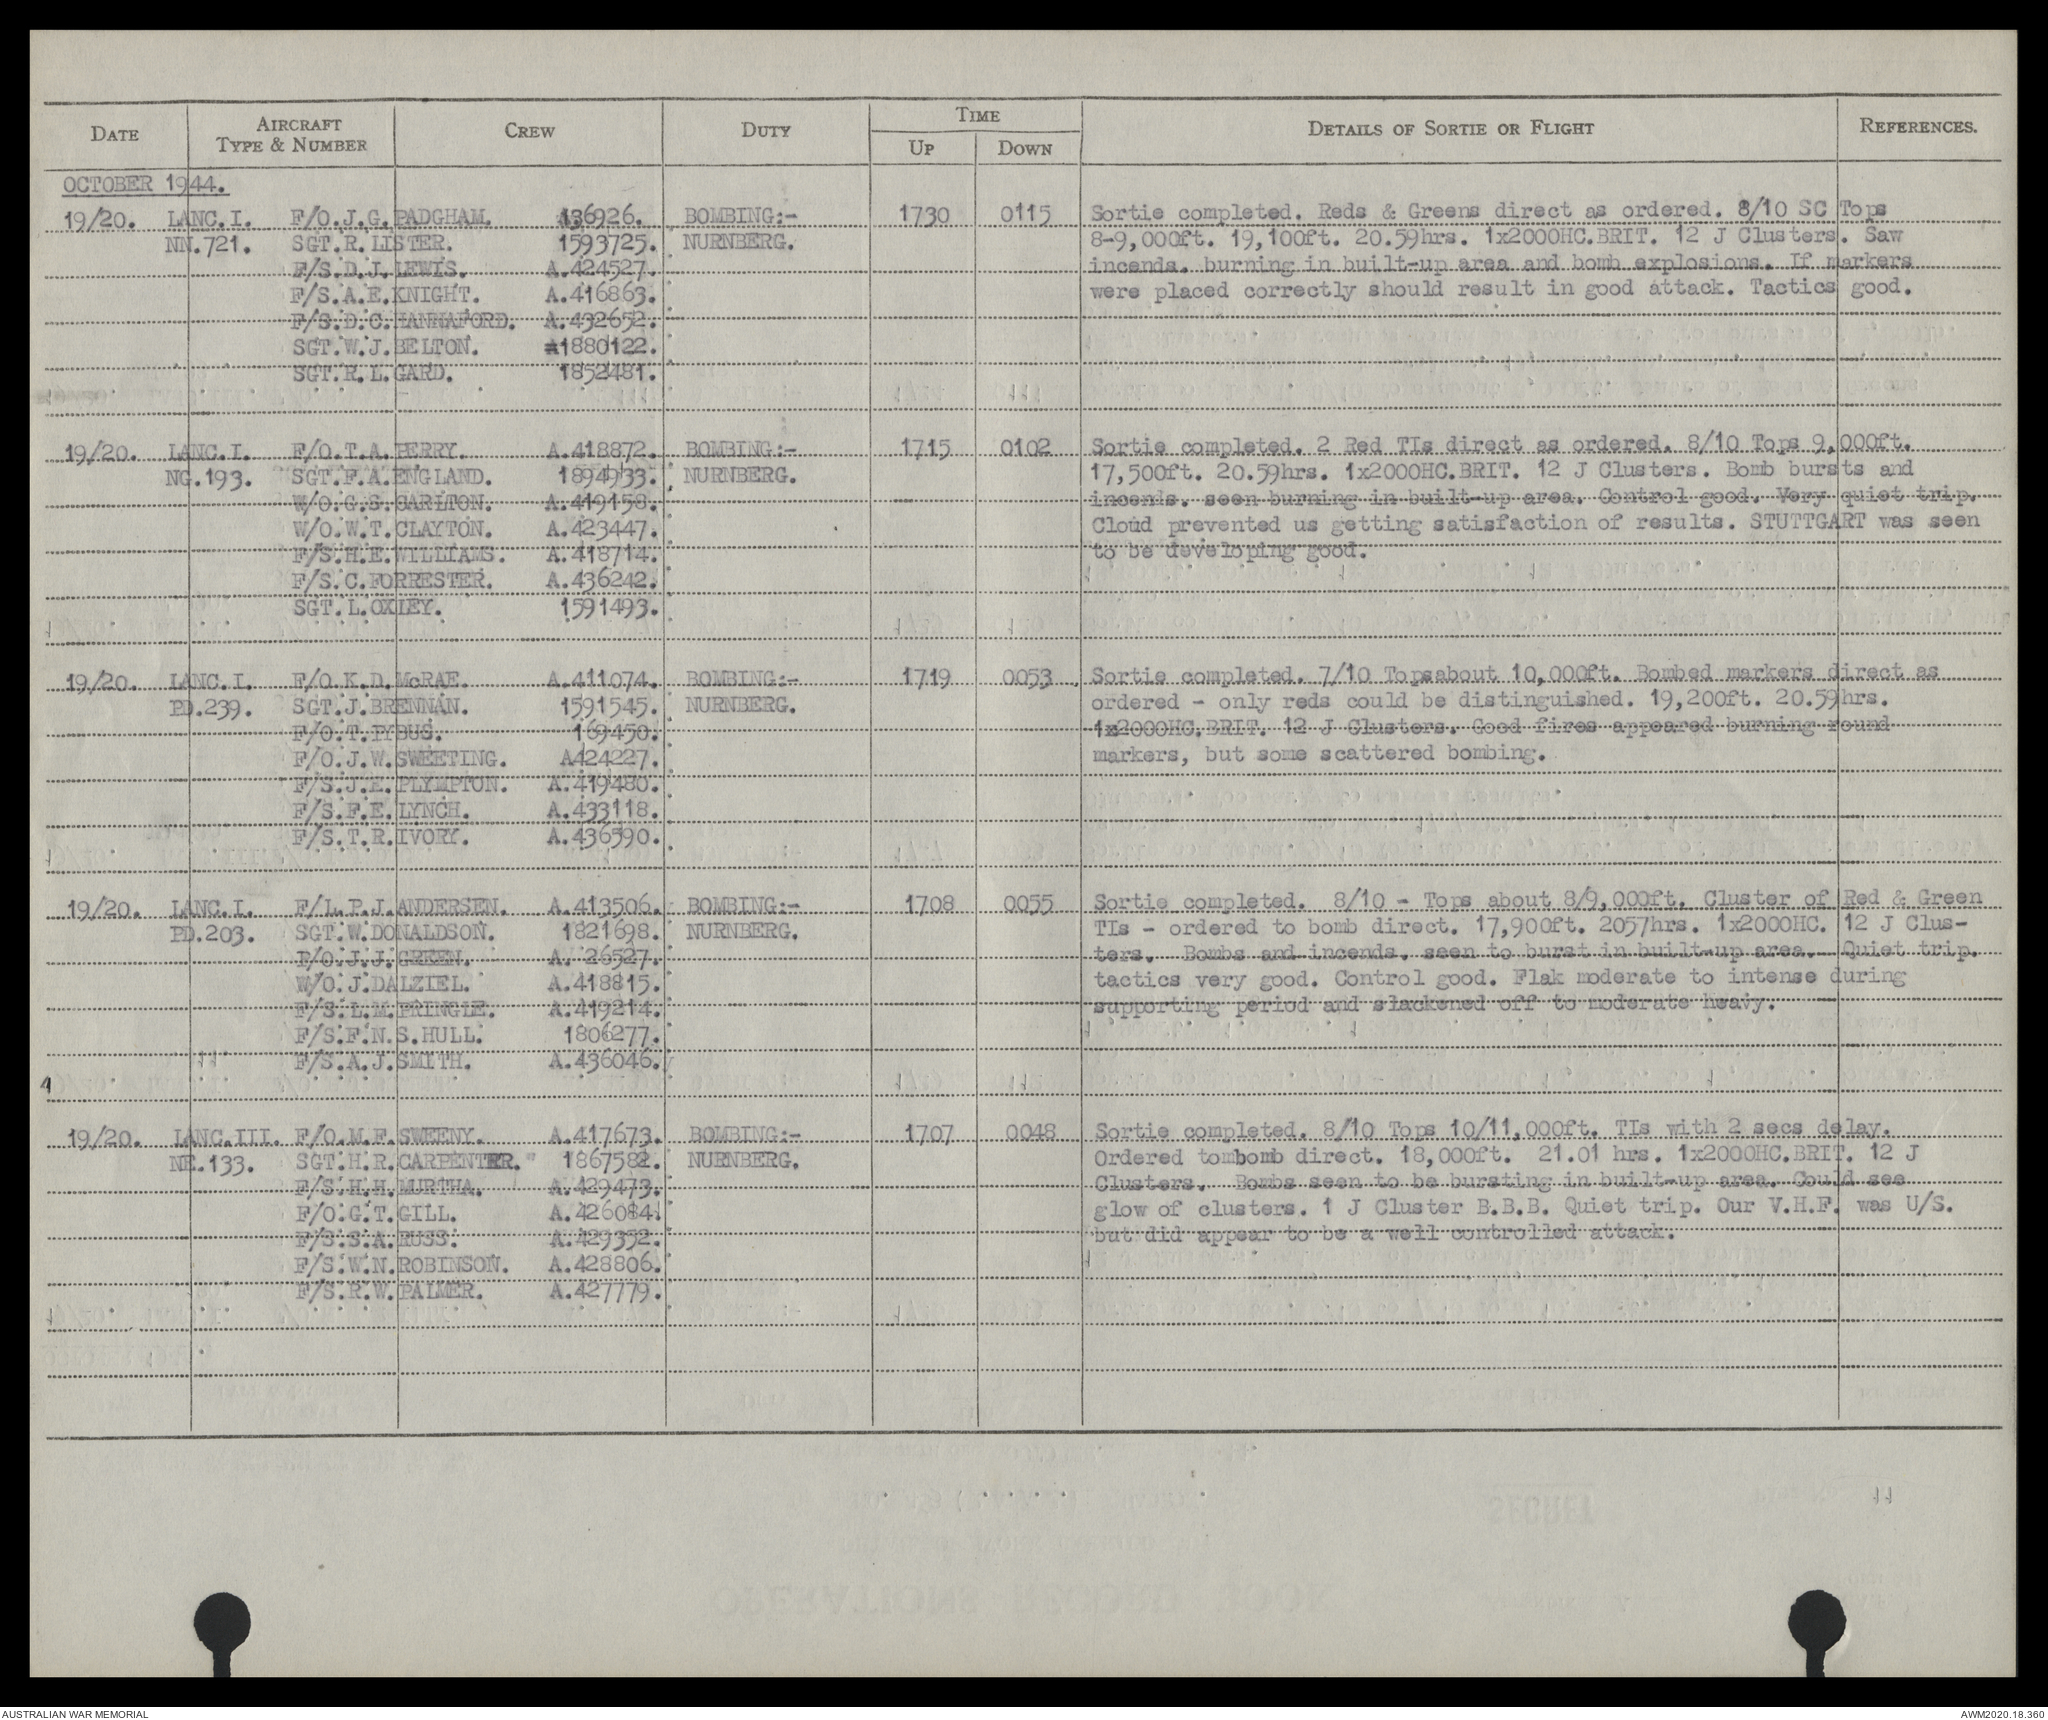 DATE AIRCRAFT TYPE & NUMBER CREW DUTY TIME UP DOWN DETAILS OF SORTIE OR FLIGHT REFERENCES.
OCTOBER 1944.
19/20. LANC.I. F/O.J.G.PADGHAM. 136926. BOMBING:- 1730 0115 Sortie completed. Reds & Greens direct as ordered. 8/10 SC Tops
NN.721. SGT.R.LISTER. 1593725. NURNBERG. 8-9,000ft. 19,100ft. 20.59hrs. 1x2000HC.BRIT. 12 J Clusters. Saw
F/S.D.J.LEWIS. A.424527. incends. burning in built-up area and bomb explosions. If markers
F/S.A.E.KNIGHT. A.416863. were placed correctly should result in good attack. Tactics good.
F/S.D.C.HANNAFORD. A.432652.
SGT.W.J.BELTON. 1880122.
SGT.R.L.GARD. 1852481.
19/20. LANC.I. F/O.T.A.PERRY. A.418872. BOMBING:- 1715 0102 Sortie completed. 2 Red TIs direct as ordered. 8/10 Tops 9,000ft.
NG.193. SGT.F.A.ENGLAND. 1894933. NURNBERG. 17,500ft. 20.59hrs. 1x2000HC.BRIT. 12 J Clusters. Bomb bursts and
W/O.G.S.CARLTON. A.419158. incends. seen burning in built-up area. Control good. Very quiet trip.
W/O.W.T.CLAYTON. A.423447. Cloud prevented us getting satisfaction of results. STUTTGART was seen
F/S.H.E.WILLIAMS. A.418714. to be developing good.
F/S.C.FORRESTER. A.436242.
SGT.L.OXLEY. 1591493.
19/20. LANC.I. F/O.K.D.McRAE. A.411074. BOMBING:- 1719 0053 Sortie completed. 7/10 Topsabout 10,000ft. Bombed markers direct as
PD.239. SGT.J.BRENNAN. 1591545. NURNBERG. ordered - only reds could be distinguished. 19,200ft. 20.59hrs.
F/O.T.PYBUS. 169450. 1x2000HC.BRIT. 12 J Clusters. Good fires appeared burning round
F/O.J.W.SWEETING. A424227. markers, but some scattered bombing.
F/S.J.E.PLYMPTON. A.419480.
F/S.F.E.LYNCH. A.433118.
F/S.T.R.IVORY. A.436590.
19/20. LANC.I. F/L.P.J.ANDERSEN. A.413506. BOMBING:- 1708 0055 Sortie completed. 8/10 - Tops about 8/9,000ft. Cluster of Red & Green
PD.203. SGT.W.DONALDSON. 1821698. NURNBERG. TIs - ordered to bomb direct. 17,900ft. 2057hrs. 1x2000HC. 12 J Clus-
P/O.J.J.GREEN. A. 26527. ters. Bombs and incends. seen to burst in built-up area. Quiet trip.
W/O.J.DALZIEL. A.418815. tactics very good. Control good. Flak moderate to intense during
F/S.L.M.PRINGLE. A.419214. supporting period and slackened off to moderate heavy.
F/S.F.N.S.HULL. 1806277.
F/S.A.J.SMITH. A.436046.
19/20. LANC.III. F/O.M.F.SWEENY. A.417673. BOMBING:- 1707 0048 Sortie completed. 8/10 Tops 10/11,000ft. TIs with 2 secs delay.
NE.133. SGT.H.R.CARPENTER. 1867582. NURNBERG. Ordered tombomb direct. 18,000ft. 21.01 hrs. 1x2000HC.BRIT. 12 J
F/S.H.H.MURTHA. A.429473. Clusters. Bombs seen to be bursting in built-up area. Could see
F/O.G.T.GILL. A.426084. glow of clusters. 1 J Cluster B.B.B. Quiet trip. Our V.H.F. was U/S.
F/S.S.A.RUSS. A.429352. but did appear to be a well controlled attack.
F/S.W.N.ROBINSON. A.428806.
F/S.R.W.PALMER. A.427779.
AUSTRALIAN WAR MEMORIAL AWM2020.18.360